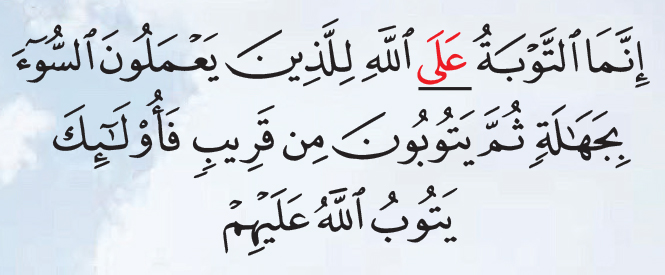 إِنَّمَا ٱلتَّوۡبَةُ عَلَى ٱللَّهِ لِلَّذِينَ يَعۡمَلُونَ ٱلسُّوٓءَ
بِجَهَٰلَةٖ ثُمَّ يَتُوبُونَ مِن قَرِيبٖ فَأُوْلَٰٓئِكَ
يَتُوبُ ٱللَّهُ عَلَيۡهِمۡ